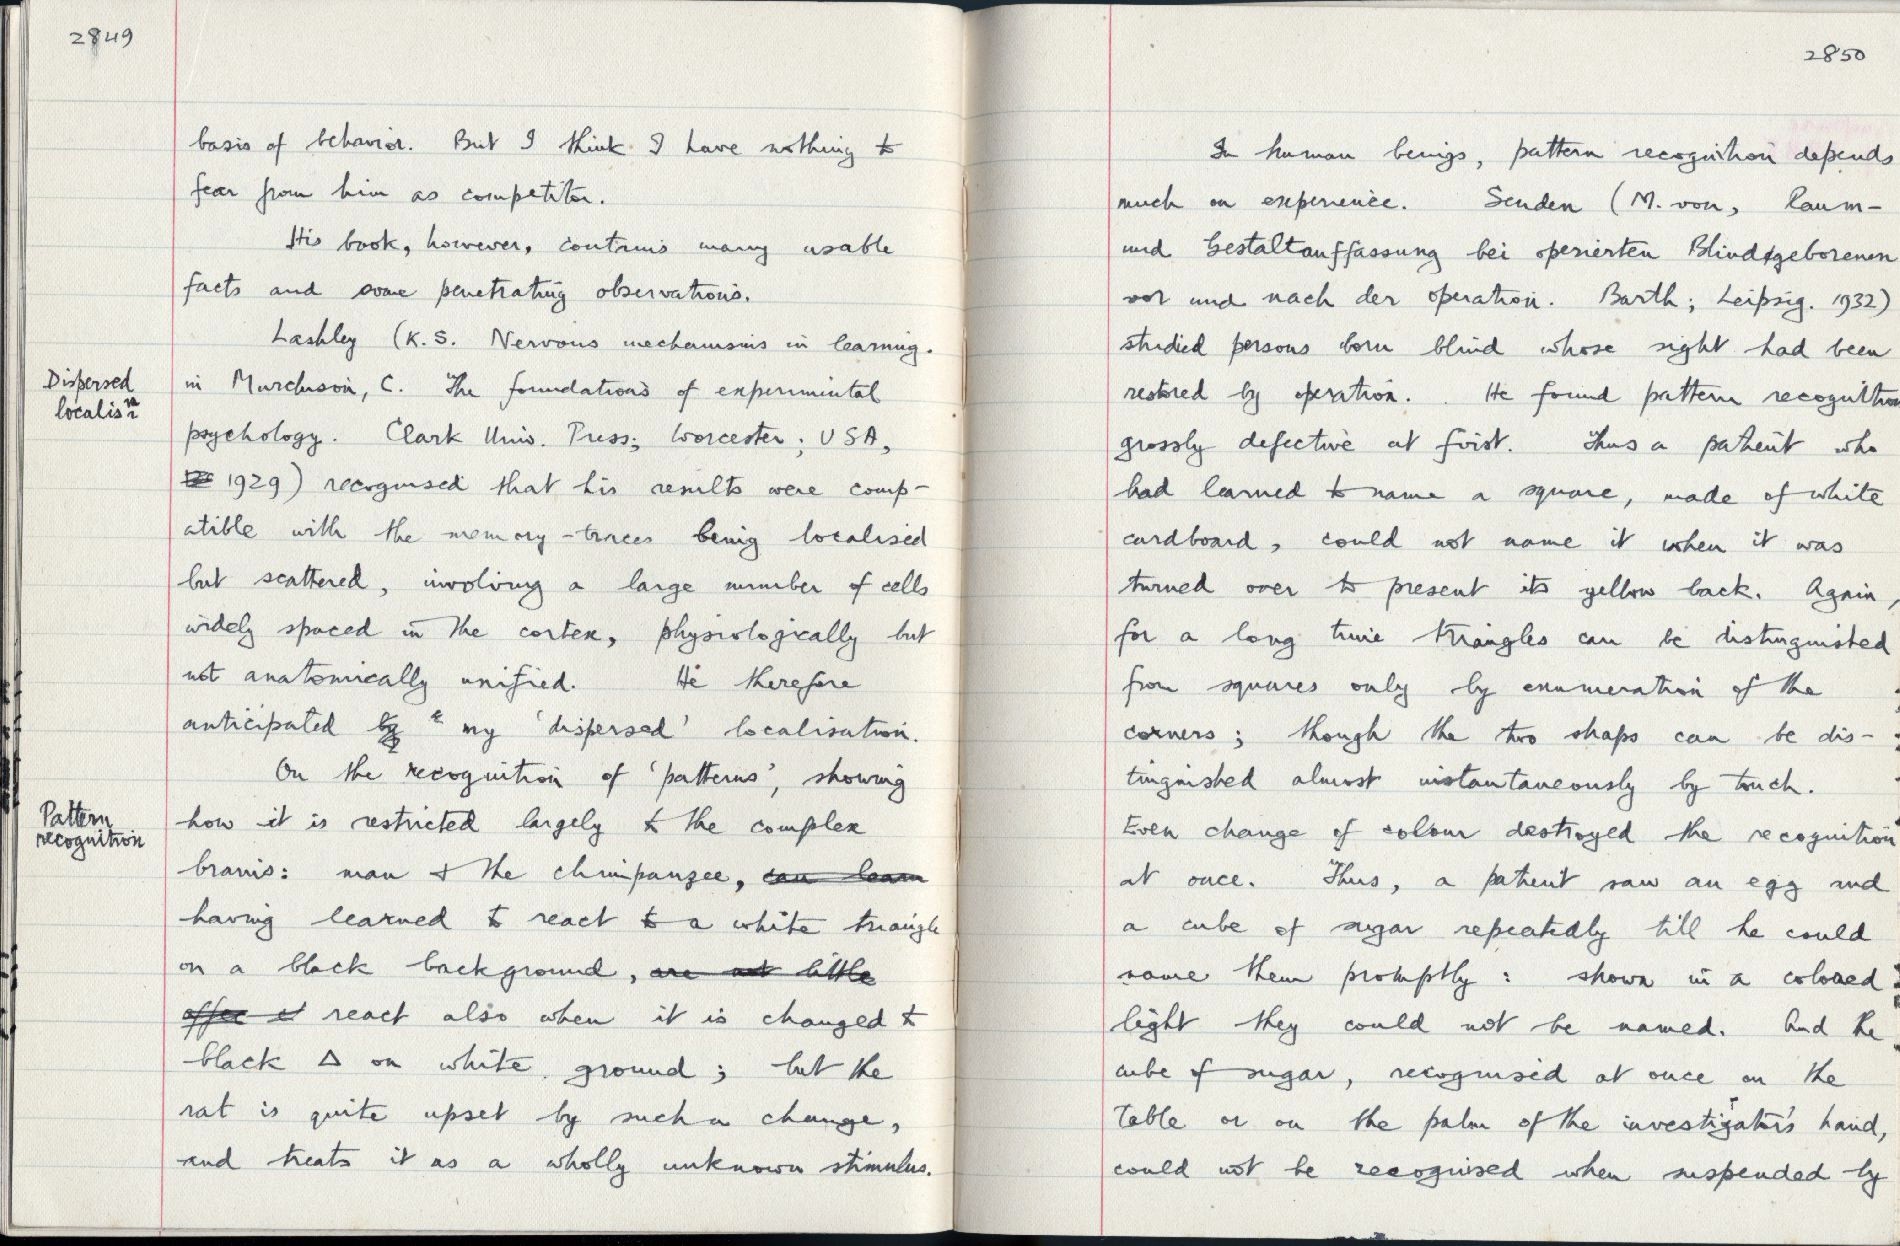 2849
basis of behavior. But I think I have nothing to
fear from him as competitor.
His book, however, contains many usable
facts and some penetrating observations.
Lashley (K.S. Nervous mechanisms in learning.
Dispersed
localisn
in Murchison, C. The foundations of experimental
psychology. Clark Univ. Press; Worcester; USA,
1929) recognised that his results were comp-
atible with the memory-traces being localised
but scattered, involving a large number of cells
widely spaced in the cortex, physiologically but
not anatomically unified. He therefore
anticipated by my 'dispersed' localisation.
On the recognition of 'patterns', showing
Pattern
recognition
how it is restricted largely to the complex
brains: man & the chimpanzee, can learn
having learned to react to a white triangle
on a black background, are not little
react also when it is changed to
black Δ on white ground; but the
rat is quite upset by such a change,
and treats it as a wholly unknown stimulus.
2850
In human beings, pattern recognition depends
much on experience. Senden (M. von, Raum-
und Gestaltauffassung bei operierten Blindgeborenen
vor und nach der operation. Barth; Leipsig. 1932)
studied persons born blind whose sight had been
restored by operation. He found pattern recognition
grossly defective at first. Thus a patient who
had learned to name a square, made of white
cardboard, could not name it when it was
turned over to present its yellow back. Again,
for a long time triangles can be distinguished
from squares only by enumeration of the
corners; though the two shaps can be dis-
tinguished almost instantaneously by touch.
Even change of colour destroyed the recognition
at once. Thus, a patient saw an egg and
a cube of sugar repeatedly till he could
name them promptly: shown in a colored
light they could not be named. And the
cube of sugar, recognised at once on the
table or on the palm of the investigator's hand,
could not be recognised when suspended by